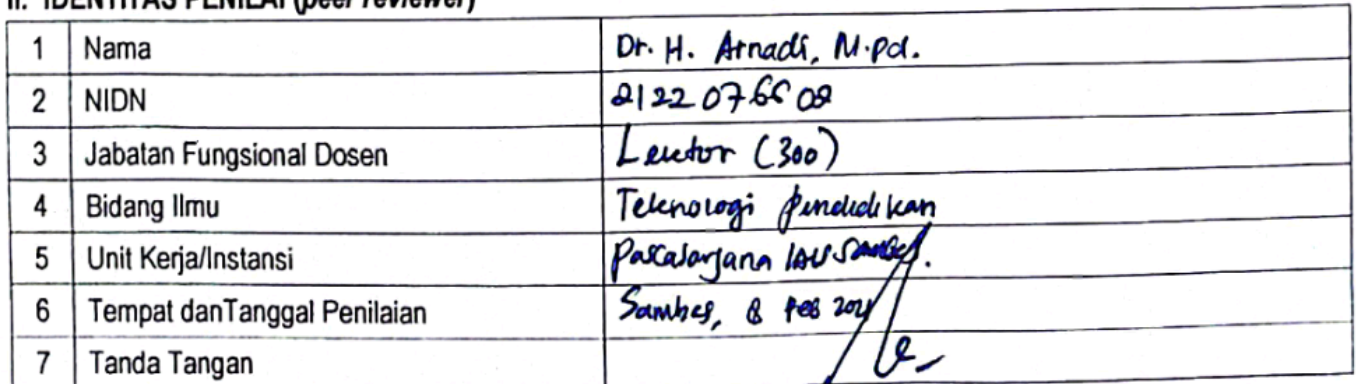 II. IDENTITAS PENILAI (peer reviewer)
1 Nama Dr. H. Arnadi, M.pd.
2 NIDN
3 Jabatan Fungsional Dosen Lektor (300)
4 Bidang Ilmu Teknologi pendidikan
5 Unit Kerja/Instansi Pascasarjana IAIS Sambas.
6 Tempat danTanggal Penilaian Sambas, 8 Feb
7 Tanda Tangan